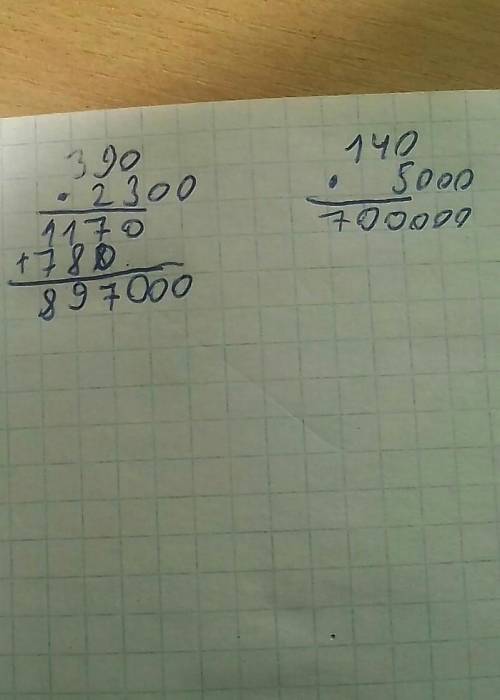 390
· 2300
1170
+780
897000
140
· 5000
700000